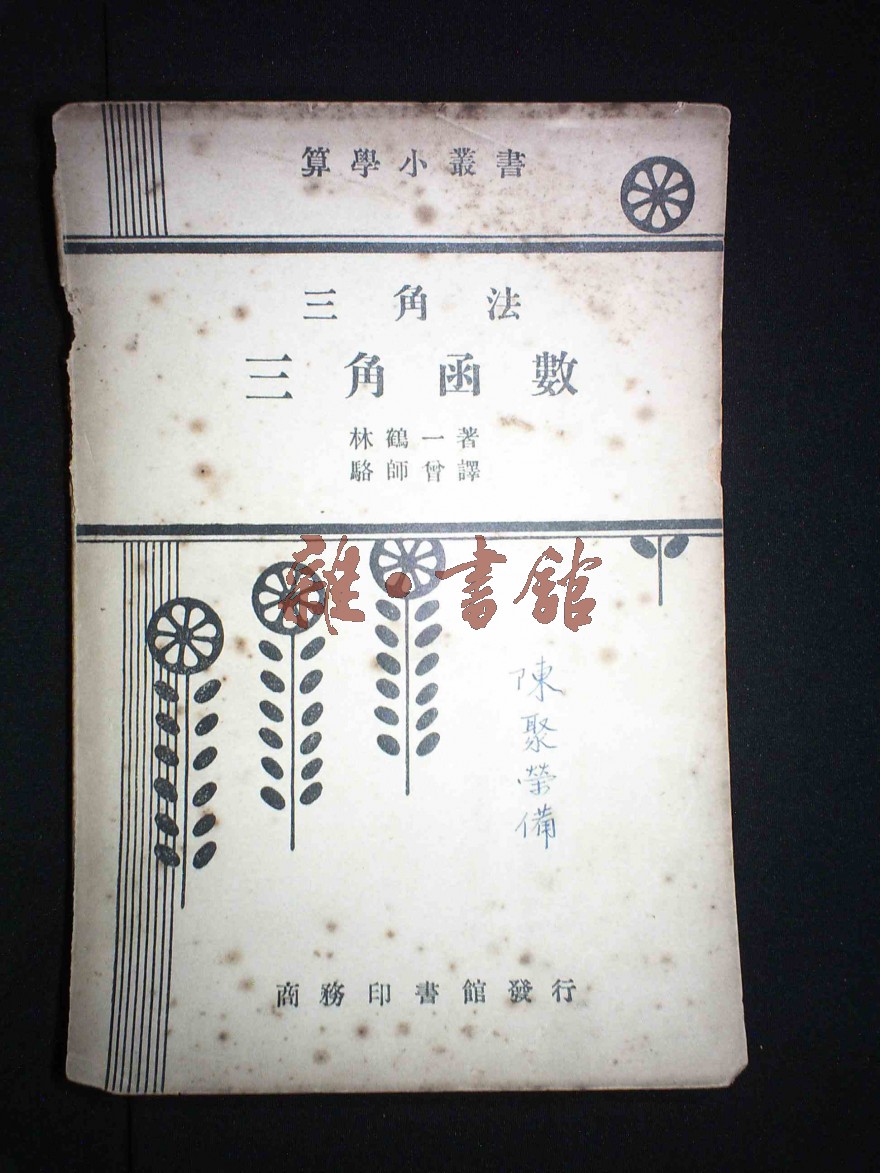 算學小叢書
三角法
三角函數
林鶴一著
駱師曾譯
雜·書館
陳聚榮備
商務印書館發行